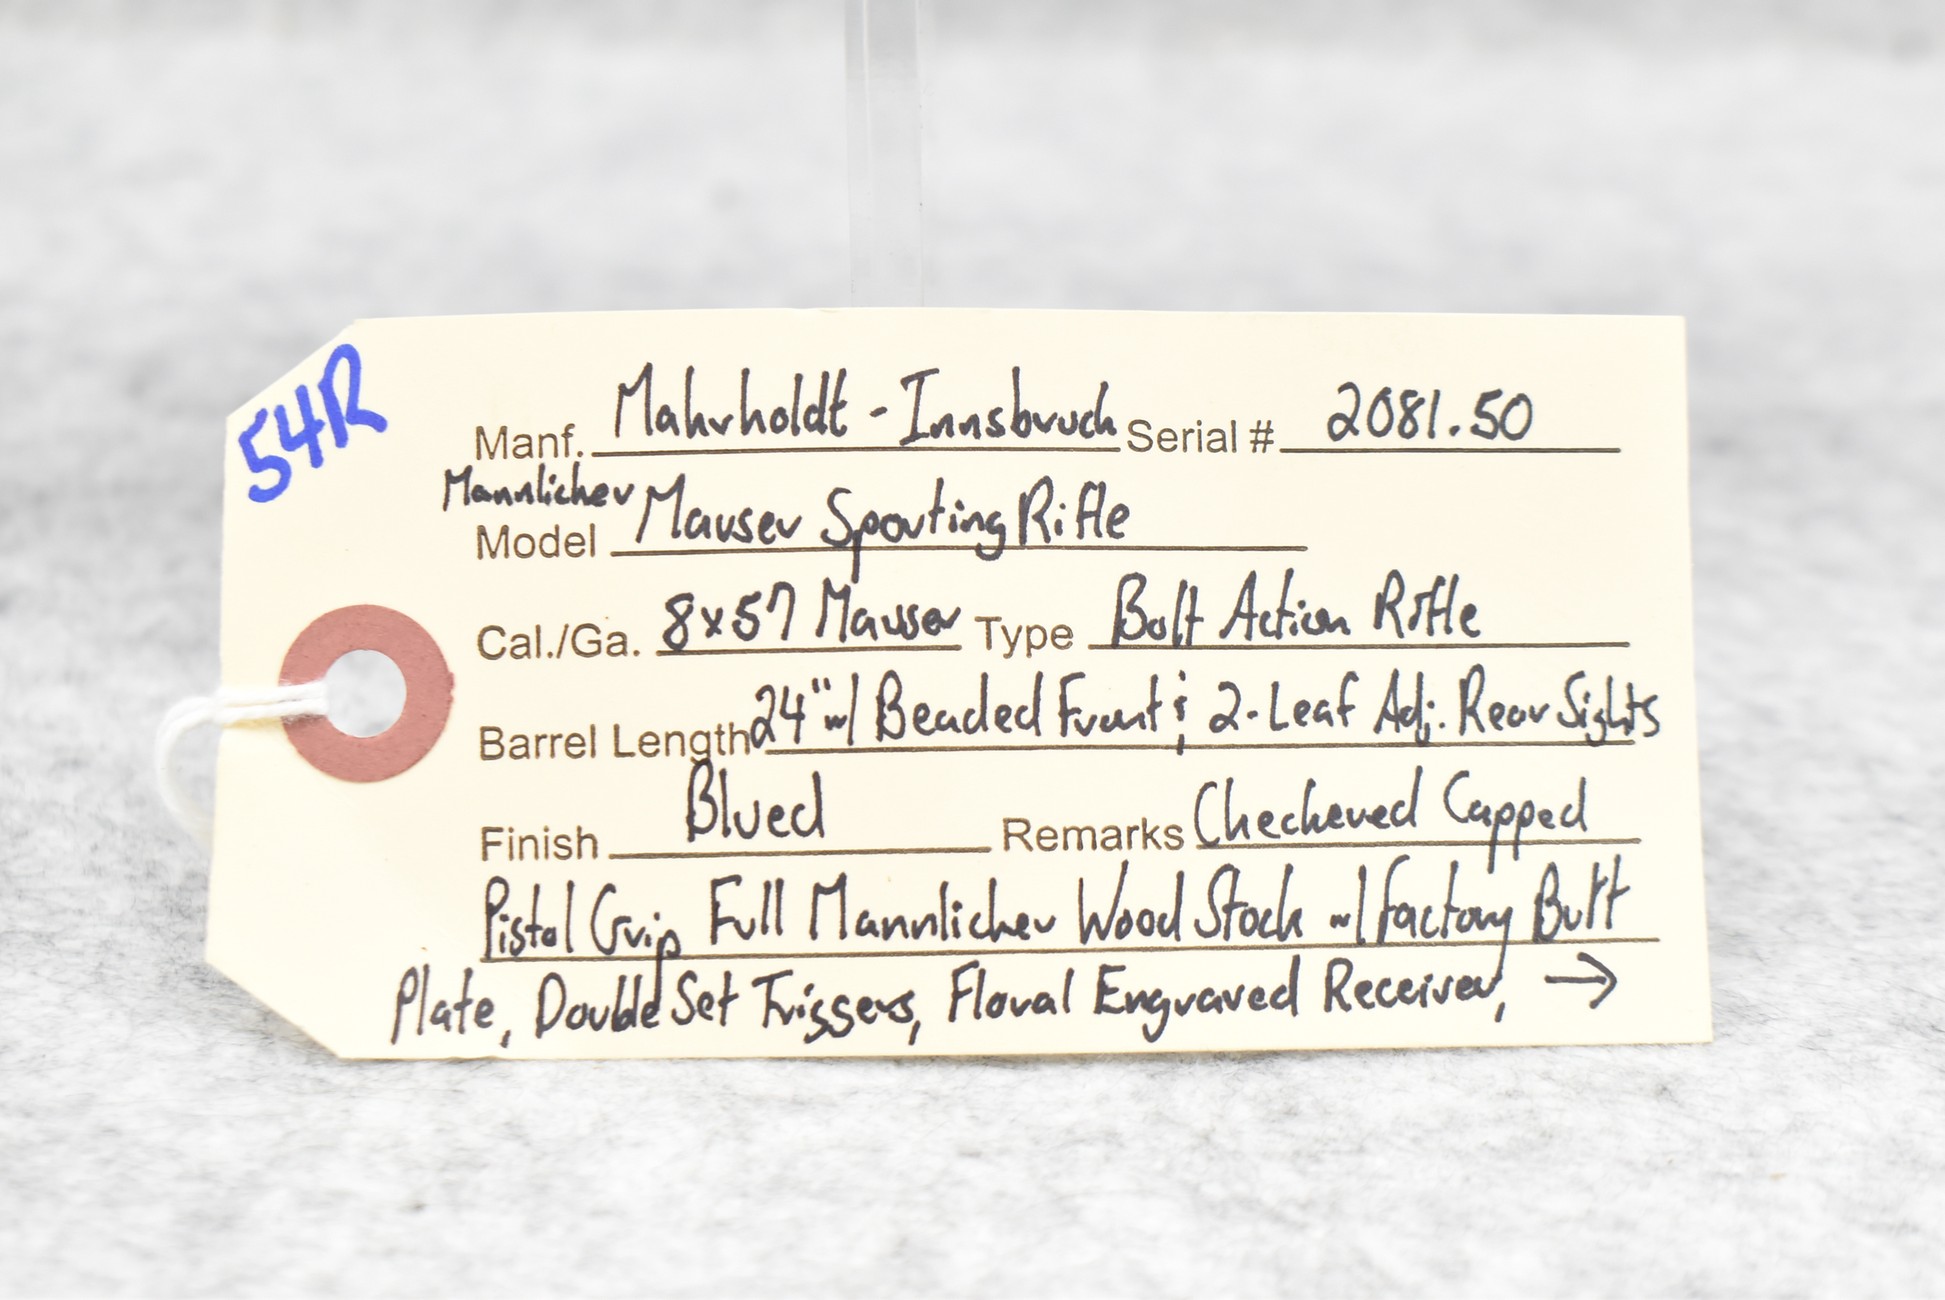 54R
Manf. Mahrholdt - Innsbruck Serial # 2081.50
Mannlicher
Model Mauser Sporting Rifle
Cal./Ga. 8x57 Mauser Type Bolt Action Rifle
Barrel Length 24" w/ Beaded Front & 2-Leaf Adj. Rear Sights
Finish Blued Remarks Checkered Capped
Pistol Grip Full Mannlicher Wood Stock w/ Factory Butt
Plate, Double Set Triggers, Floral Engraved Receiver, →